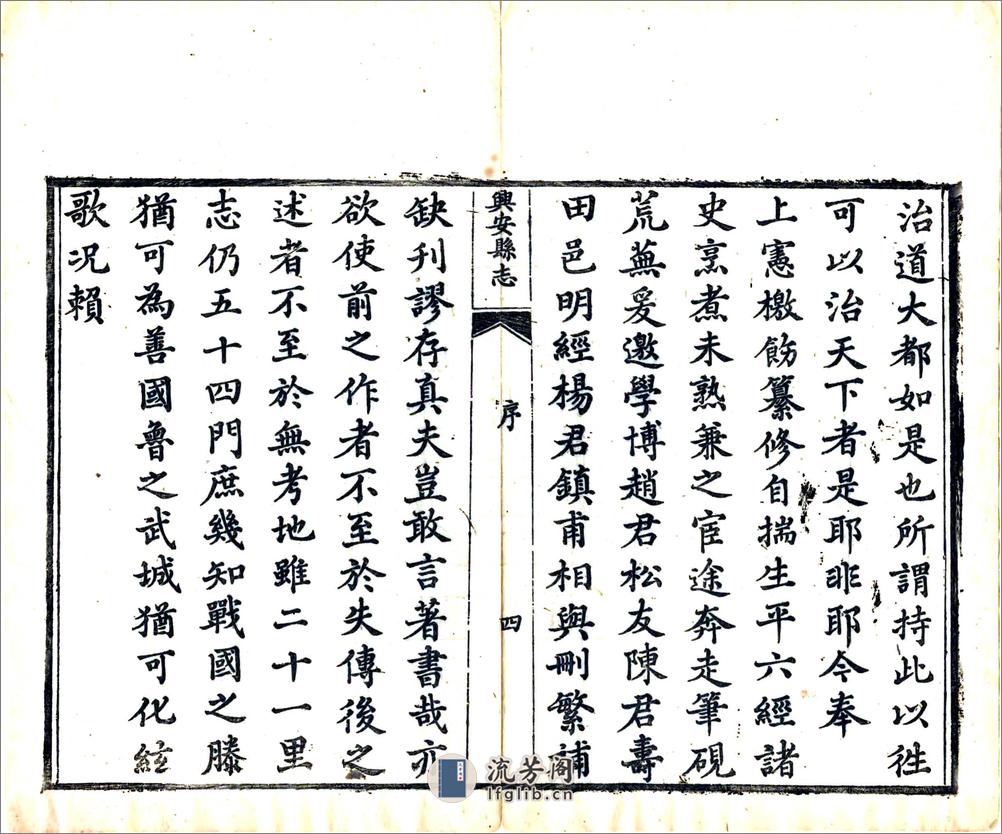 治道大都如是也所謂持此以徃
可以治天下者是耶非耶今奉
上憲檄飭纂修自揣生平六經諸
史烹煮未熟兼之宦途奔走筆硯
荒蕪爰邀學博趙君松友陳君壽
田邑明經楊君鎮甫相與刪繁補
興安縣志
序
四
缺刋謬存真夫豈敢言著書哉亦
欲使前之作者不至於失傳後之
述者不至於無考地雖二十一里
志仍五十四門庶幾知戰國之滕
猶可為善國魯之武城猶可化絃
歌况賴
流芳阁
lfglib.cn